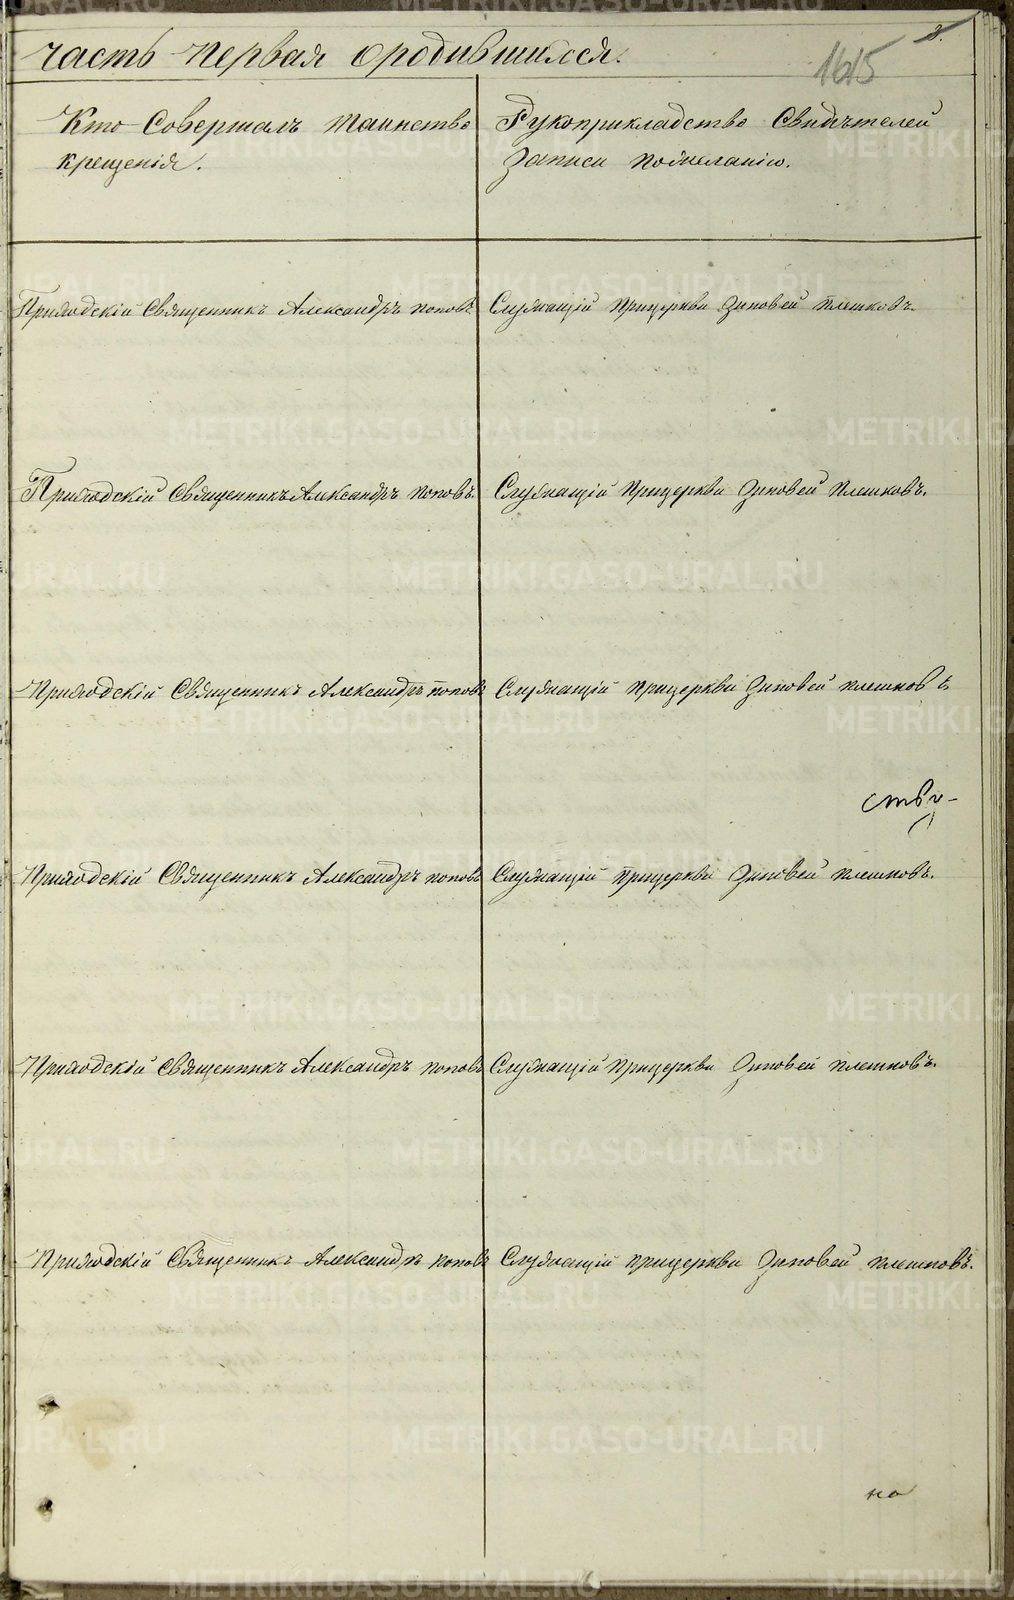 часть первая о родившихся.
2.
1615
Кто Совершалъ таинство
крещенія.
Рукоприкладство Свидѣтелей
записи пожеланію.
Приходскій Священникъ Александръ поповъ
Служащій прицеркви Зиновей плешковъ.
Приходскій Священникъ Александръ поповъ.
Служащій прицеркви Зиновей плешковъ.
Приходскій Священникъ Александръ поповъ
Служащій прицеркви Зиновей плешковъ
Приходскій Священникъ Александръ поповъ
Служащій прицеркви Зиновей плешковъ.
Приходскій Священникъ Александръ поповъ
Служащій прицеркви Зиновей плешковъ.
Приходскій Священникъ Александръ поповъ
Служащій прицеркви Зиновей плешковъ.
но
METRIKI.GASO-URAL.RU